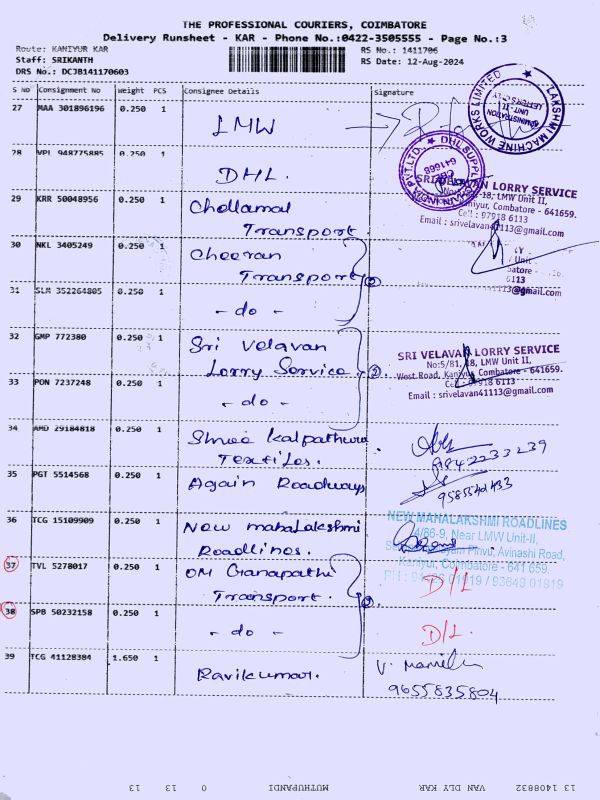 THE PROFESSIONAL COURIERS, COIMBATORE
Delivery Runsheet - KAR - Phone No.:0422-3505555 - Page No.:3
Route: KANIYUR KAR
RS No.: 1411706
Staff: SRIKANTH
RS Date: 12-Aug-2024
DRS No.: DCJB141170603
S NO Consignment No Weight PCS Consignee Details Signature
27 MAA 301896196 0.250 1 LMW
LAKSHMI MACHINE WORKS LIMITED
ADMINISTRATION
UNIT-II
28 VPL 948775885 0.250 1 DHL.
641668
SRI VELAVAN LORRY SERVICE
18, LMW Unit II,
Kaniyur, Combatore - 641659.
Cell : 97918 6113
Email : srivelavan41113@gmail.com
29 KRR 50048956 0.250 1 Chellamal
Transport.
30 NKL 3405249 0.250 1 Cheeran
Transport
31 SLM 352264805 0.250 1 - do -
32 GMP 772380 0.250 1 Sri Velavan
Lorry Service
33 PON 7237248 0.250 1 - do -
SRI VELAVAN LORRY SERVICE
No:5/81, 18, LMW Unit II,
West Road, Kaniyur, Combatore - 641659.
Cell : 97918 6113
Email : srivelavan41113@gmail.com
34 AMD 29184818 0.250 1 Shree Kalpathuru
Textiles.
9842233239
35 PGT 5514568 0.250 1 Again Roadways
9585541433
36 TCG 15109909 0.250 1 New mahalakshmi
Roadlines.
NEW MAHALAKSHMI ROADLINES
4/86-9, Near LMW Unit-II,
Pirivu, Avinashi Road,
Kaniyur, Coimbatore - 641 659.
01919 / 93643 01919
37 TVL 5278017 0.250 1 OM Ganapathi
Transport.
D/L
38 SPB 50232158 0.250 1 - do -
D/L.
39 TCG 41128384 1.650 1 Ravikumar.
9655835804
13 1408832 VAN DLY KAR MUTHUPANDI 0 13 13